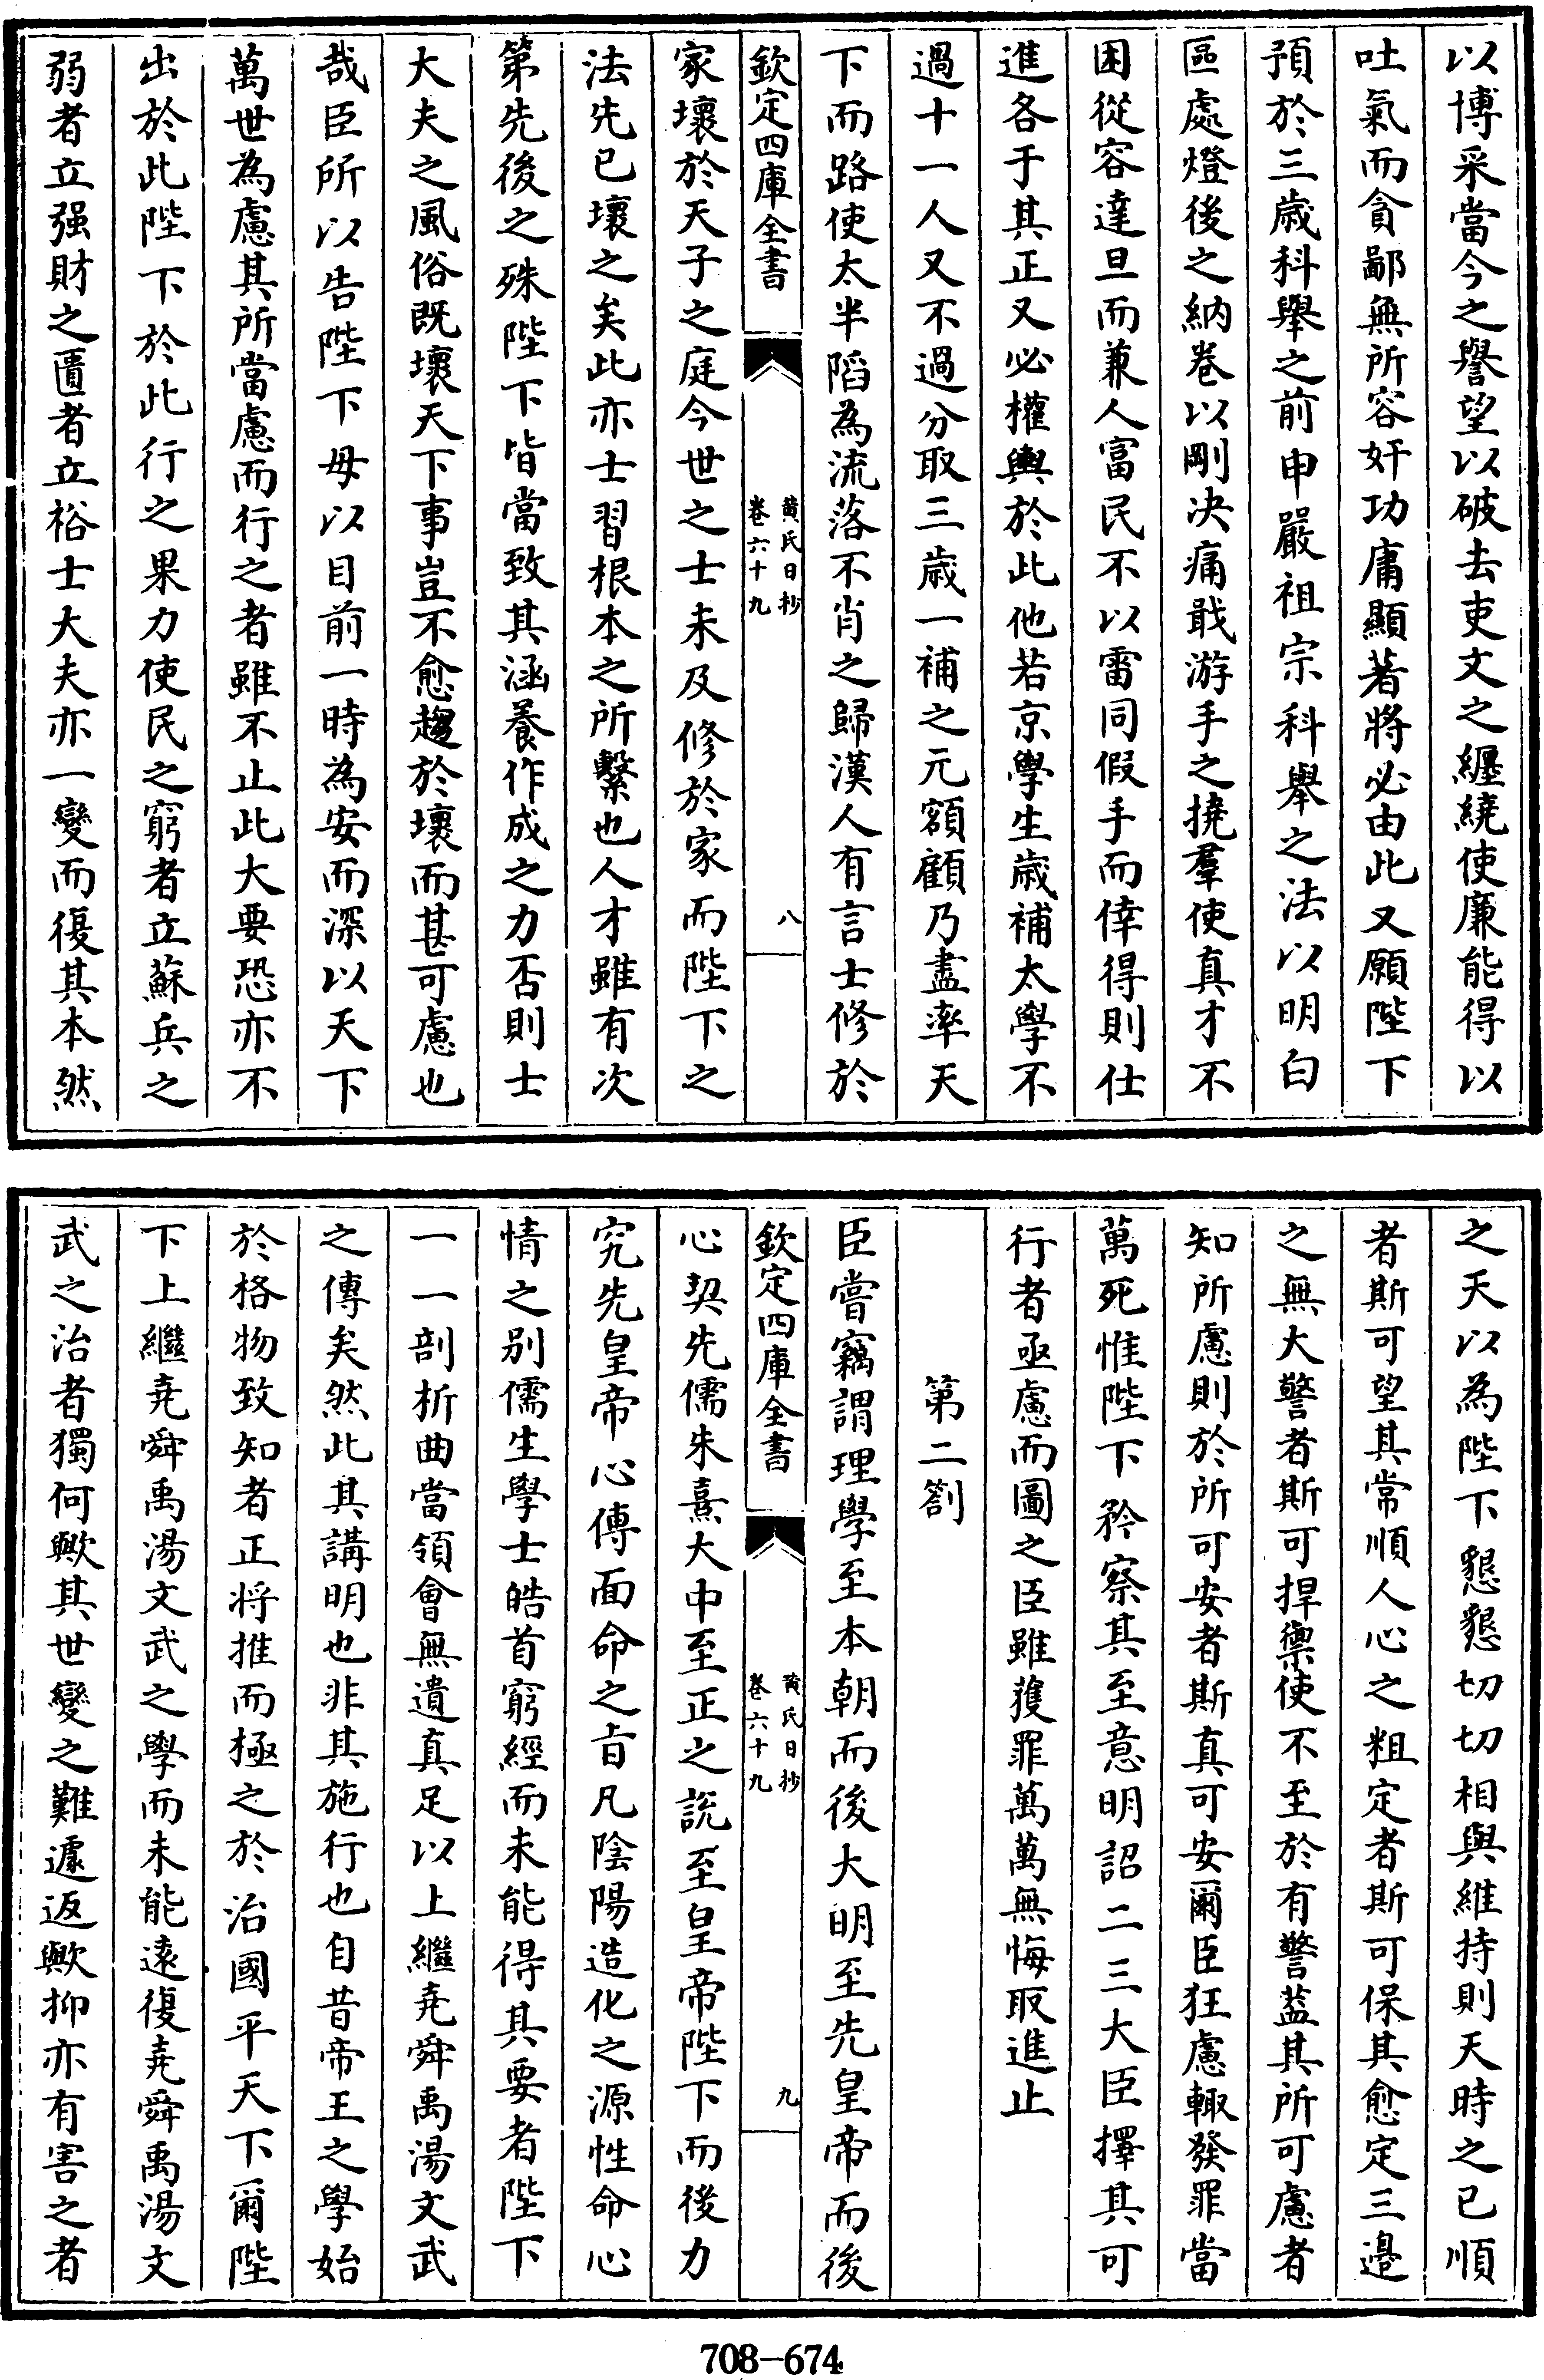 以博采當今之譽望以破去吏文之纏繞使廉能得以
吐氣而貪鄙無所容奸功庸顯著將必由此又願陛下
預於三歲科舉之前申嚴祖宗科舉之法以明白
區處燈後之納卷以剛決痛戢游手之撓羣使真才不
困從容達旦而兼人富民不以雷同假手而倖得則仕
進各于其正又必權輿於此他若京學生歲補太學不
過十一人又不過分取三歲一補之元額顧乃盡率天
下而路使太半陷為流落不肖之歸漢人有言士修於
欽定四庫全書
黄氏日抄
卷六十九
八
家壞於天子之庭今世之士未及修於家而陛下之
法先已壞之矣此亦士習根本之所繫也人才雖有次
第先後之殊陛下皆當致其涵養作成之力否則士
大夫之風俗既壞天下事豈不愈趨於壞而甚可慮也
哉臣所以告陛下毋以目前一時為安而深以天下
萬世為慮其所當慮而行之者雖不止此大要恐亦不
出於此陛下於此行之果力使民之窮者立蘇兵之
弱者立强財之匱者立裕士大夫亦一變而復其本然
之天以為陛下懇懇切切相與維持則天時之已順
者斯可望其常順人心之粗定者斯可保其愈定三邊
之無大警者斯可捍禦使不至於有警葢其所可慮者
知所慮則於所可安者斯真可安爾臣狂慮輙發罪當
萬死惟陛下矜察其至意明詔二三大臣擇其可
行者亟慮而圖之臣雖獲罪萬萬無悔取進止
第二劄
臣嘗竊謂理學至本朝而後大明至先皇帝而後
欽定四庫全書
黄氏日抄
卷六十九
九
心契先儒朱熹大中至正之說至皇帝陛下而後力
究先皇帝心傳面命之旨凡陰陽造化之源性命心
情之别儒生學士皓首窮經而未能得其要者陛下
一一剖析曲當領會無遺真足以上繼堯舜禹湯文武
之傳矣然此其講明也非其施行也自昔帝王之學始
於格物致知者正将推而極之於治國平天下爾陛
下上繼堯舜禹湯文武之學而未能遠復堯舜禹湯文
武之治者獨何歟其世變之難遽返歟抑亦有害之者
708-674